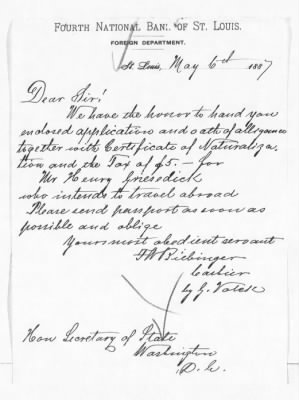 FOURTH NATIONAL BANK OF ST. LOUIS.
FOREIGN DEPARTMENT.
St. Louis, May 6th 1887
Dear Sir!
We have the honor to hand you
enclosed application and oath of allegiance
together with Certificate of Naturaliza
tion and the Tax of $5. — for
Mr Henry Griesedick
who intends to travel abroad
Please send passport as soon as
possible and oblige
Yours most obedient servant
F W Biebinger
Cashier
by G.
Hon Secretary of State
Washington
D. C.